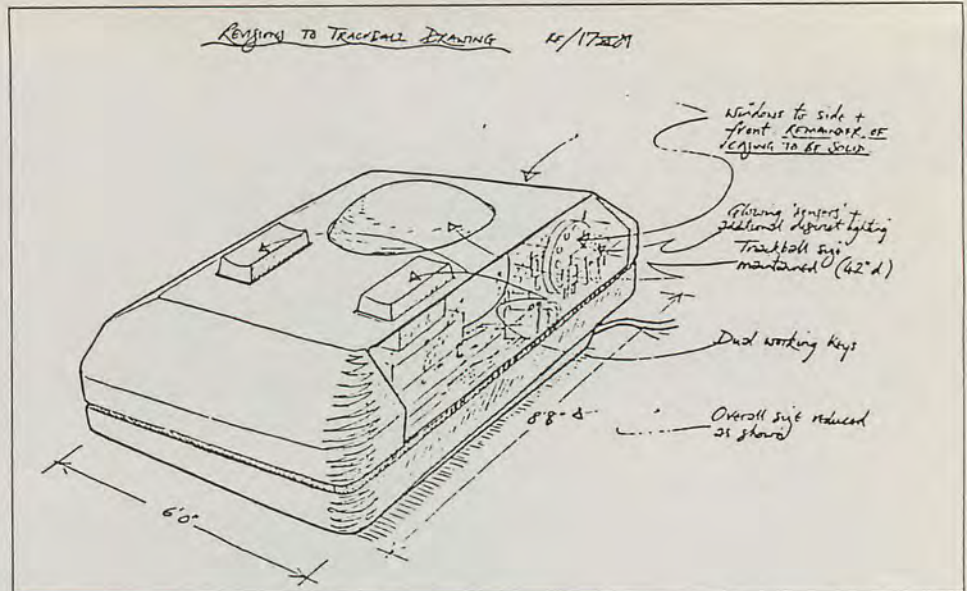 REVISIONS TO TRACKBALL DRAWING
Windows to side +
front. REMAINDER OF
CASING TO BE SOLID.
Glowing 'sensors' +
additional discreet lighting
Trackball size
maintained (42"d)
Dual working keys
8'8"
Overall size reduced
as shown
6'0"